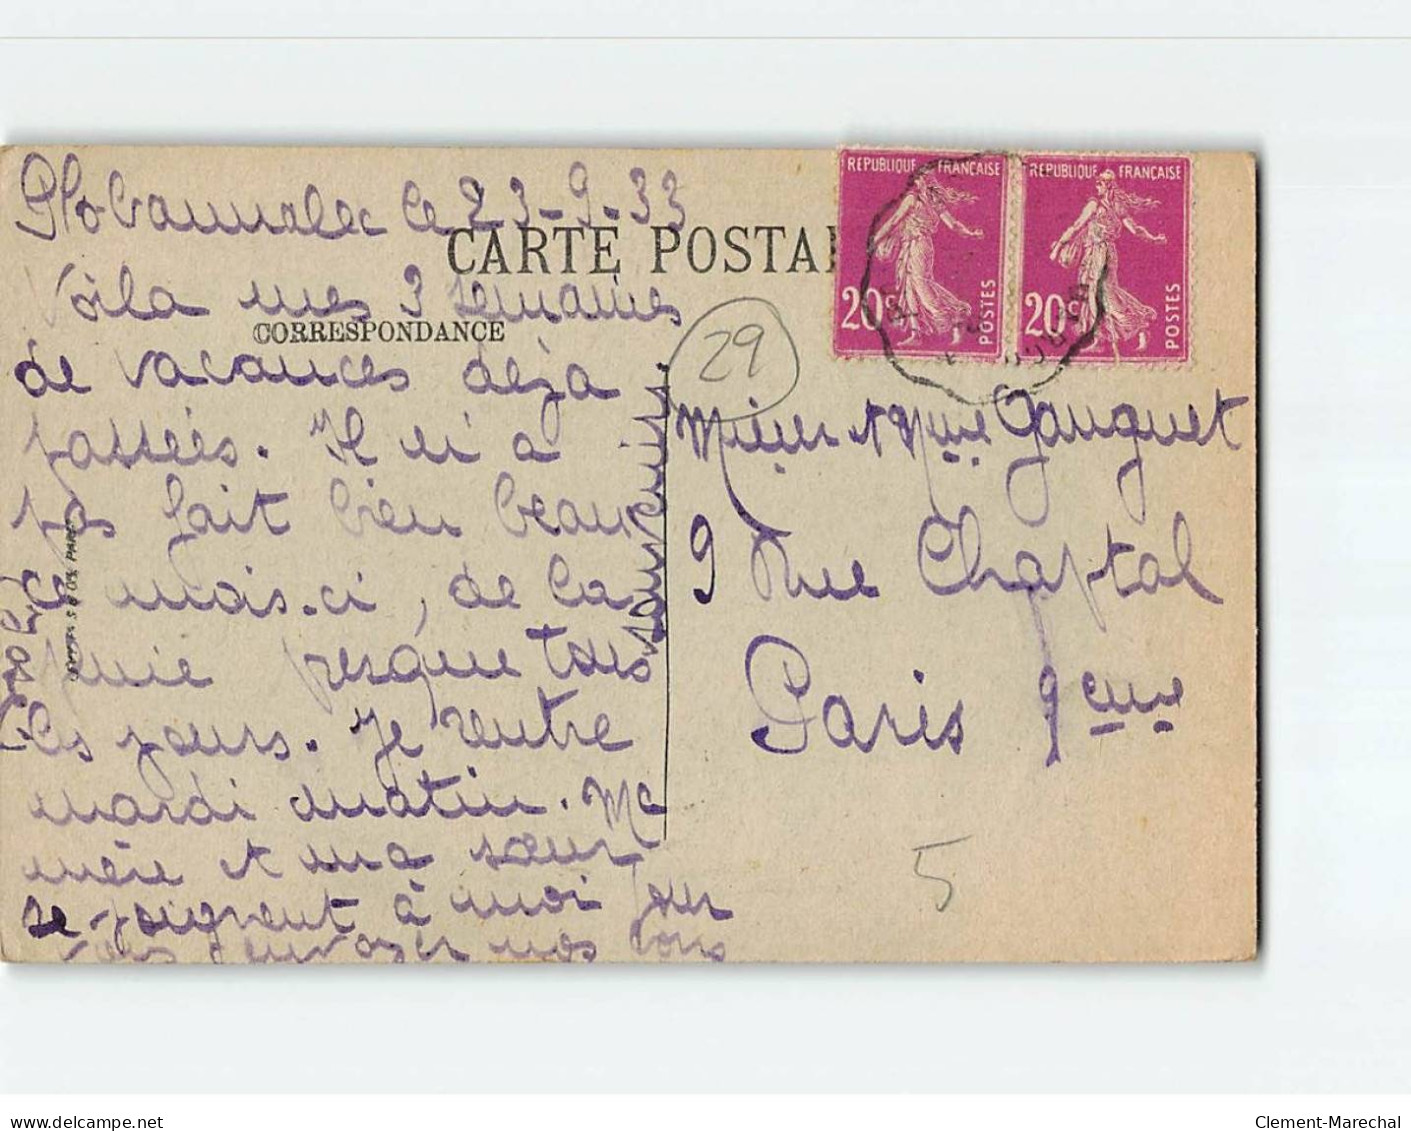 Plobannalec le 23-9-33
CARTE POSTAL
Voila mes 3 semaines
CORRESPONDANCE
de vacances déja
passées. Il n'a
pas fait bien beau
ce mois-ci, de la
pluie presque tous
les jours. Je rentre
mardi matin. Ma
mère et ma sœur
se joignent à moi pour
vous envoyer nos bons
souvenirs.
29
REPUBLIQUE FRANÇAISE
20c POSTES
REPUBLIQUE FRANÇAISE
20c POSTES
Msieur & Mme Gauguet
9 Rue Chaptal
Paris 9eme
5
www.delcampe.net
Clement-Marechal